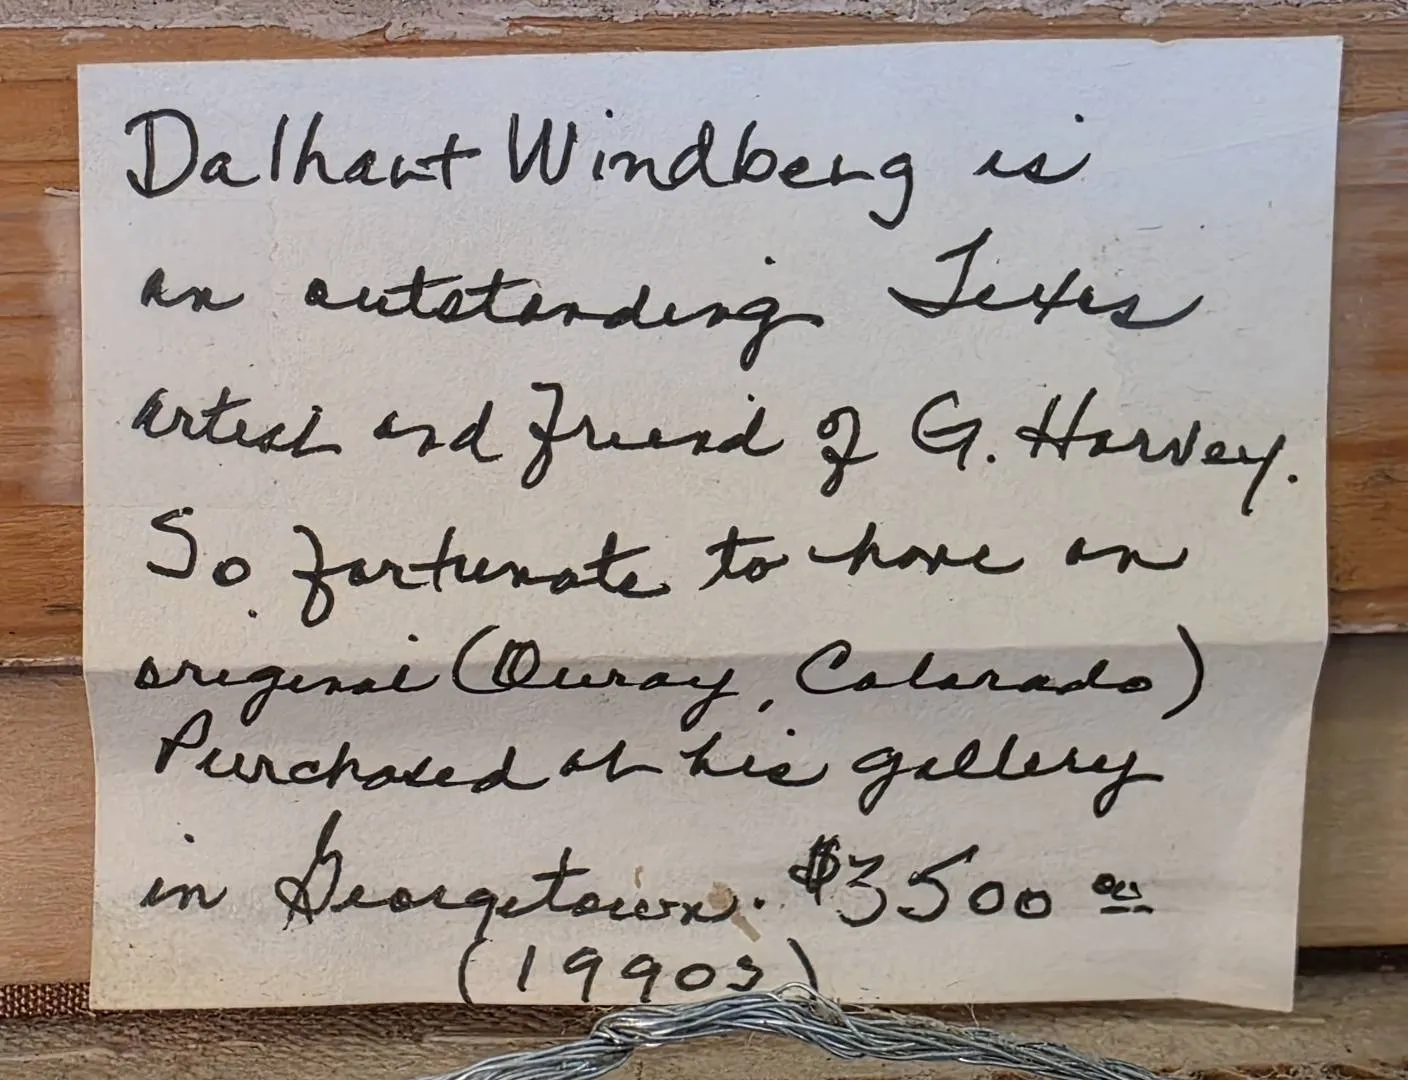 Dalhart Windberg is
an outstanding Texas
artist and friend of G. Harvey.
So fortunate to have an
original (Ouray, Colorado)
Purchased at his gallery
in Georgetown. $3500 00
(1990s)